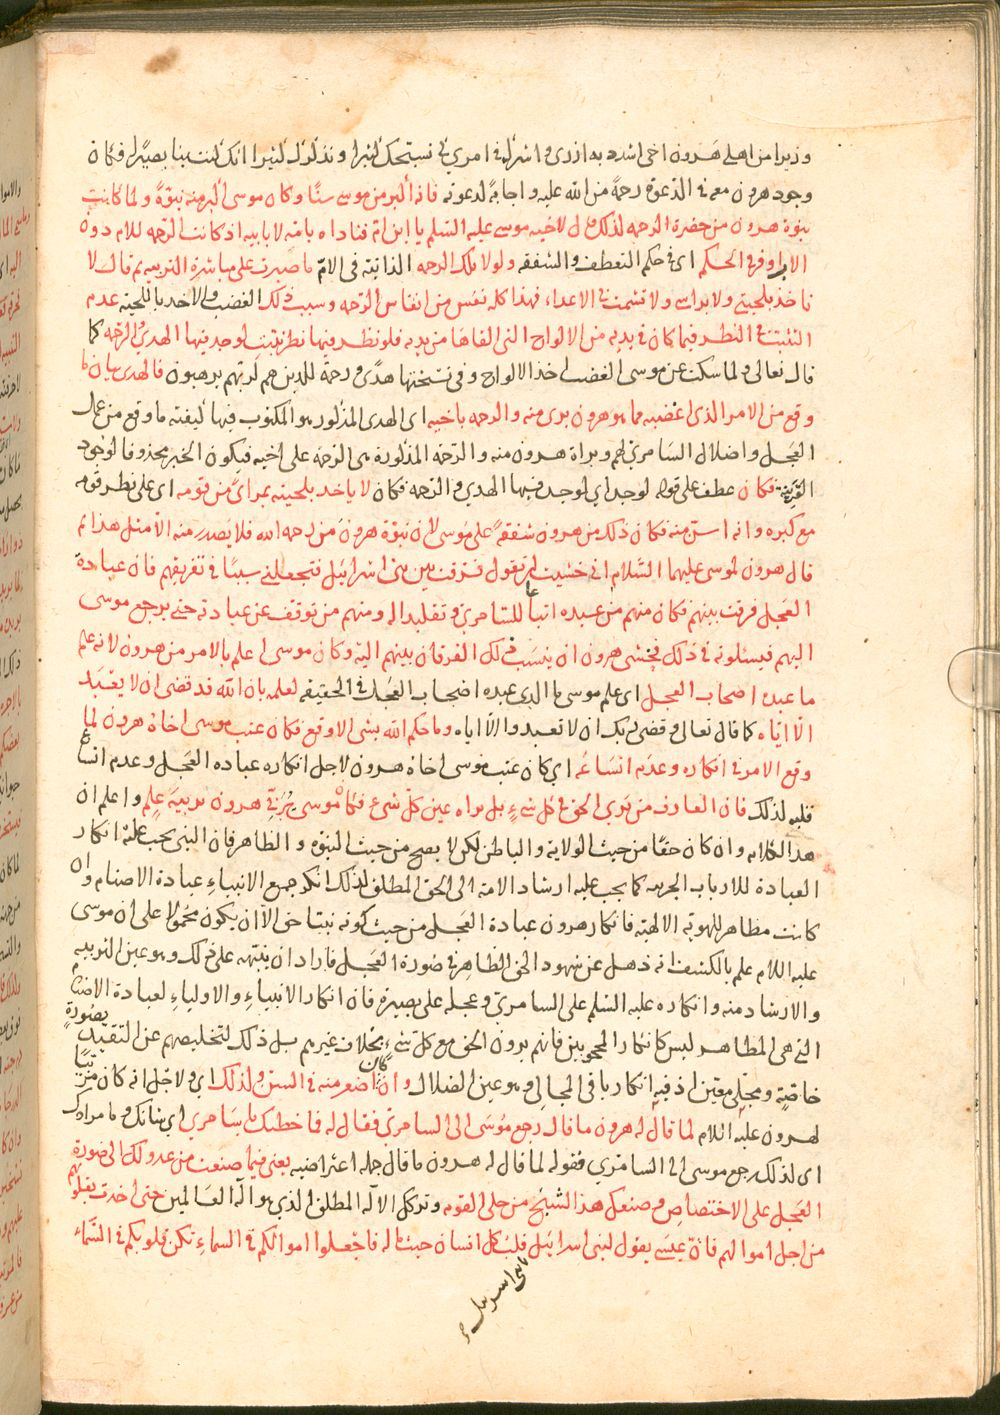 وزيرا من اهلي هرون اخي اشدد به ازري واشركه في امري كي نسبحك كثيرا ونذكرك كثيرا انك كنت بنا بصيرا فكان
وجود هرون معه في الدعوة رحمة من الله عليه واجابة لدعوته فانه اكبر من موسى سنا وكان موسى اكبر منه نبوة ولما كانت
نبوة هرون من حضرة الرحمه لذلك قال لاخيه موسى عليه السلم يا ابن ام فناداه بامه لا بابيه اذ كانت الرحمه للام دون
الاب اوفر في الحكم اي في حكم التعطف والشفقه ولولا تلك الرحمه الذاتية في الام ما صبرت على مباشرة التربيه ثم قال لا
تاخذ بلحيتي ولا براسي ولا تشمت في الاعداء فهذا كله نفس من انفاس الرحمه وسبب ذلك الغضب والاخذ باللحيه عدم
التثبت في النظر فيما كان في يديه من الالواح التي القاها من يديه فلو نظر فيها نظر تثبت لوجد فيها الهدى والرحمه كما
قال تعالى ولما سكت عن موسى الغضب اخذ الالواح وفي نسختها هدى ورحمة للذين هم لربهم يرهبون فالهدى بيان ما
وقع من الامر الذي اغضبه مما هو هرون برى منه والرحمه باخيه اي الهدى المذكور هو المكتوب فيها كيفيته ما وقع من عمل
العجل واضلال السامري لهم وبراة هرون منه والرحمة المذكورة هى الرحمه على اخيه فيكون الخبر محذوفا لوجود
القرينة فكان عطف على قوله لوجد اي لوجد فيها الهدى والرحمه فكان لا ياخذ بلحيته بمراى من قومه اى على نظر قومه
مع كبره وانه اسن منه فكان ذلك من هرون شفقة على موسى لان نبوة هرون من رحمه الله فلا يصدر منه الا مثل هذا ثم
قال هرون لموسى عليهما السلام اني خشيت ان تقول فرقت بين بنى اسرائيل فتجعلني سببا في تفريقهم فان عبادة
العجل فرقت بينهم فكان منهم من عبده اتباعا للسامري وتقليدا له ومنهم من توقف عن عبادته حتى يرجع موسى
اليهم فيسئلونه في ذلك فخشى هرون ان ينسب ذلك الفرقان بينهم اليه وكان موسى اعلم بالامر من هرون لانه علم
ما عبده اصحاب العجل اى علم موسى ما الذي عبده اصحاب العجل في الحقيقه لعلمه بان الله قد قضى ان لا يعبد
الا اياه كما قال تعالى وقضى ربك ان لا تعبدوا الا اياه وما حكم الله بشى الا وقع فكان عتب موسى اخاه هرون لما
وقع الامر في انكاره وعدم اتساعه اي كان عتب موسى اخاه هرون لاجل انكاره عباده العجل وعدم اتساع
قلبه لذلك فان العارف من يرى الحق في كل شيء بل يراه عين كل شئ فكان موسى يربي هرون تربية علم واعلم ان
هذا الكلام وان كان حقا من حيث الولاية والباطن لكن لا يصح من حيث النبوة والظاهر فان النبي يجب عليه انكار
العبادة للارباب الجزييه كما يجب عليه ارشاد الامة الى الحق المطلق لذلك انكر جميع الانبياء عبادة الاصنام وان
كانت مظاهر للهوية الالهية فانكار هرون عبادة العجل من حيث كونه نبيا حق الا ان يكون محمولا على ان موسى
عليه السلام علم بالكشف انه ذهل عن شهود الحق الظاهر في صورة العجل فاراد ان ينبهه على ذلك وهو عين التربيه
والارشاد منه وانكاره عليه السلم على السامري وعجله على بصيرة فان انكار الانبياء والاولياء لعبادة الاصنام
التي هى المظاهر ليس كانكار المحجوبين فانهم يرون الحق مع كل شيء بخلاف غيرهم بل ذلك لتخليصهم عن التقيد بصورة
خاصة ومجلى معين اذ فيه انكار باقى المجالى وهو عين الضلال وان كان اصغر منه في السن ولذلك اي ولاجل انه كان مربيا
لهرون عليه السلام لما قال له هرون ما قال رجع موسى الى السامري فقال له فما خطبك يا سامري اي ما شانك وما مرادك
اى لذلك رجع موسى الى السامري فقوله لما قال له هرون ما قال جمله اعتراضيه يعنى فيما صنعت من عدولك الى صورة
العجل على الاختصاص وصنعك هذا الشبح من حلى القوم وتركك الاله المطلق الذي هو اله العالمين حتى اخذت بقلوبهم
من اجل اموالهم فان عيسى يقول لبنى اسرائيل قلب كل انسان حيث ماله فاجعلوا اموالكم في السماء تكن قلوبكم في السماء